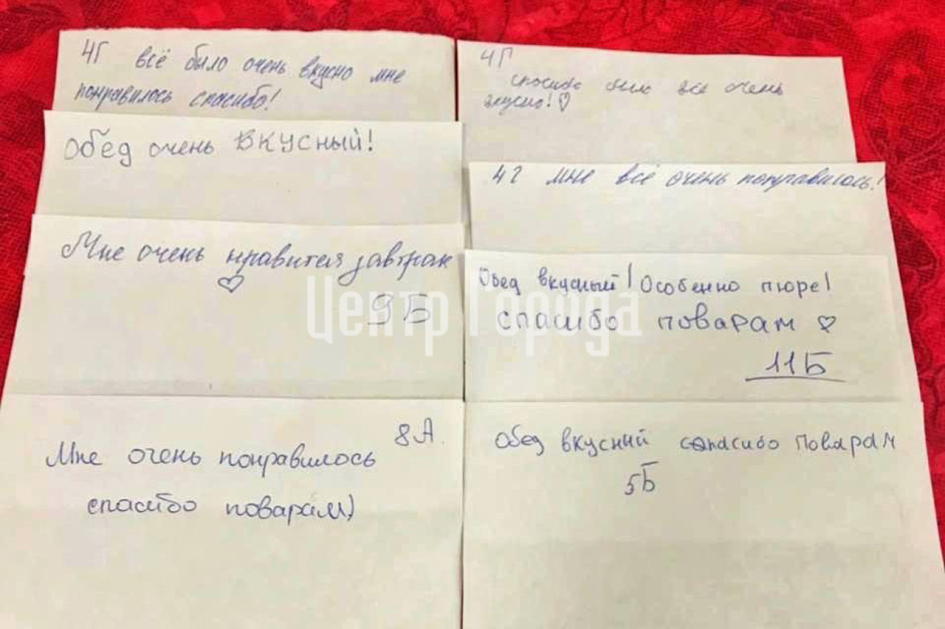 4Г всё было очень вкусно мне
понравилось спасибо!
Обед очень вкусный!
Мне очень нравится завтрак
9Б
8А.
Мне очень понравилось
спасибо поварам)
4Г
спосибо было все очень
вкусно!
4г мне всё очень понравилось!
Обед вкусный! Особенно пюре!
спасибо поварам
11Б
Обед вкусний спасибо Поварам
5Б
Центр Города